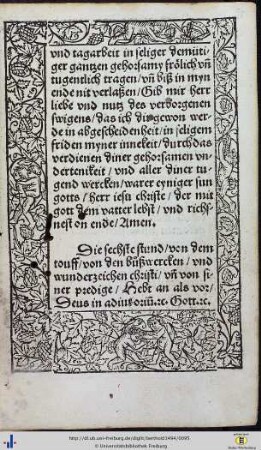 vnd tagarbeit in seliger demüti-
ger gantzen gehorsamy frölich vñ
tugentlich tragen / vñ biß in myn
ende nit verlaßen / Gib mir herr
liebe vnd nutz des verborgenen
swigens / das ich din gewon wer-
de in abgescheidenheit / in seligem
friden myner innekeit / durch das
verdienen diner gehorsamen vn-
dertenikeit / vnd aller diner tu-
gend wercken / warer eyniger sun
gotts / herr iesu christe / der mit
gott dem vatter lebst / vnd richs-
nest on ende / Amen.
Die sechste stund / von dem
touff / von den bůßwercken / vnd
wunderzeichen christi / vñ von si-
ner predige / Hebt an als vor /
Deus in adiutoriũ.⁊c. Gott.⁊c.
http://dl.ub.uni-freiburg.de/diglit/berthold1494/0095
© Universitätsbibliothek Freiburg